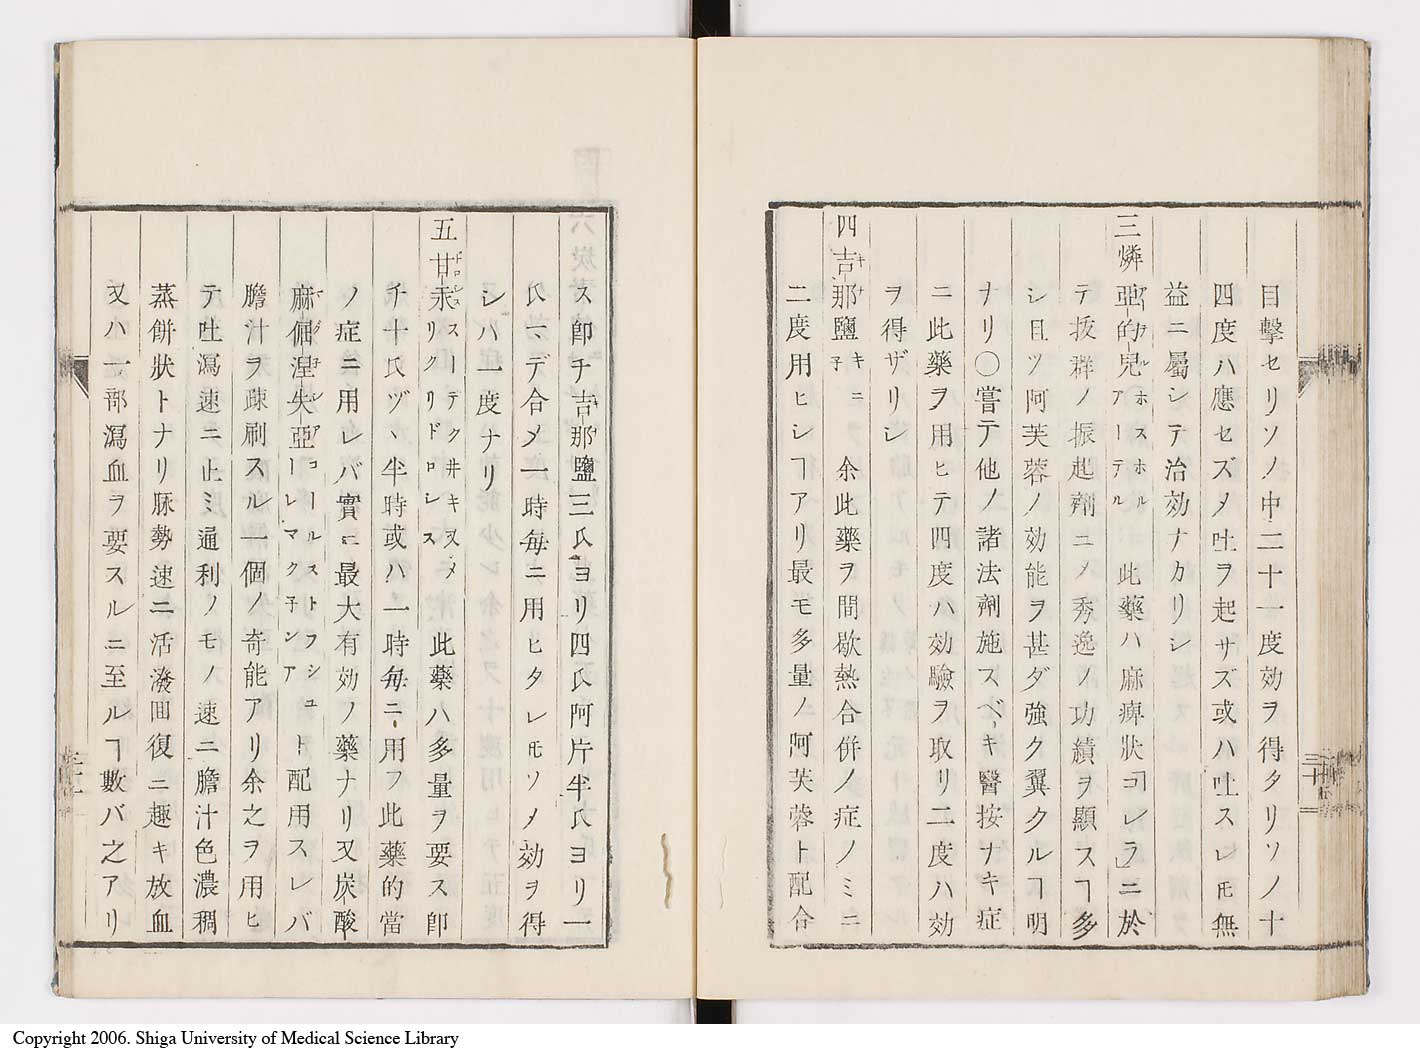 目擊セリソノ中二十一度効ヲ得タリソノ十
四度ハ應セズ〆吐ヲ起サズ或ハ吐スレ𪜈無
益ニ屬シテ治効ナカリシ
三燐亞的兒ホスホルアーテル 此藥ハ麻痺狀コレラニ於
テ拔群ノ振起劑ニ〆秀逸ノ功績ヲ顯スヿ多
シ且ツ阿芙蓉ノ効能ヲ甚ダ強ク翼クルヿ明
ナリ〇嘗テ他ノ諸法劑施スベキ醫按ナキ症
ニ此藥ヲ用ヒテ四度ハ効驗ヲ取リ二度ハ効
ヲ得ザリシ
四吉那鹽キニ子 余此藥ヲ間歇熱合併ノ症ノミニ
二度用ヒシヿアリ最モ多量ノ阿芙蓉ト配合
ス卽チ吉那鹽三氏ヨリ四氏阿片半氏ヨリ一
氏マデ合〆一時每ニ用ヒタレ𪜈ソノ効ヲ得
シハ一度ナリ
五甘汞スーテクヰキヲメリクリドロレス 此藥ハ多量ヲ要ス卽
チ十氏ヅヽ半時或ハ一時每ニ用フ此藥的當
ノ症ニ用レバ實ニ最大有効ノ藥ナリ又炭酸
麻倔涅失亞コールストフシューレマク子シア ト配用スレバ
膽汁ヲ疎刷スル一個ノ奇能アリ余之ヲ用ヒ
テ吐瀉速ニ止ミ通利ノモノ速ニ膽汁色濃稠
蒸餅狀トナリ脉勢速ニ活潑回復ニ趣キ放血
又ハ一部瀉血ヲ要スルニ至ルヿ數バ之アリ
Copyright 2006. Shiga University of Medical Science Library